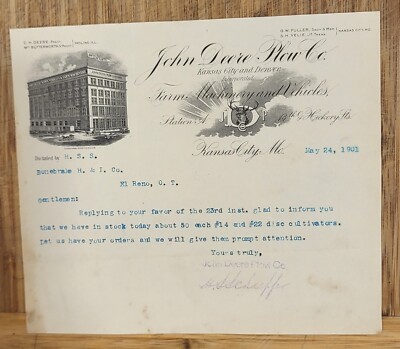 C. H. DEERE, PREST.
WM BUTTERWORTH
MOLINE, ILL.
W. W. FULLER, SEC'Y & MGR.
S. H. VELIE, JR. TREAS.
KANSAS CITY, MO.
John Deere Plow Co.
Kansas City and Denver
Farm Machinery and Vehicles,
Station A. 13th & Hickory Sts.
Kansas City, Mo. May 24, 1901
Dictated by H. Z. S.
Bonebrake H. & I. Co.
El Reno, O. T.
Gentlemen:
Replying to your favor of the 23rd inst. glad to inform you
that we have in stock today about 50 each #14 and #22 disc cultivators.
Let us have your orders and we will give them prompt attention.
Yours truly,
John Deere Plow Co.